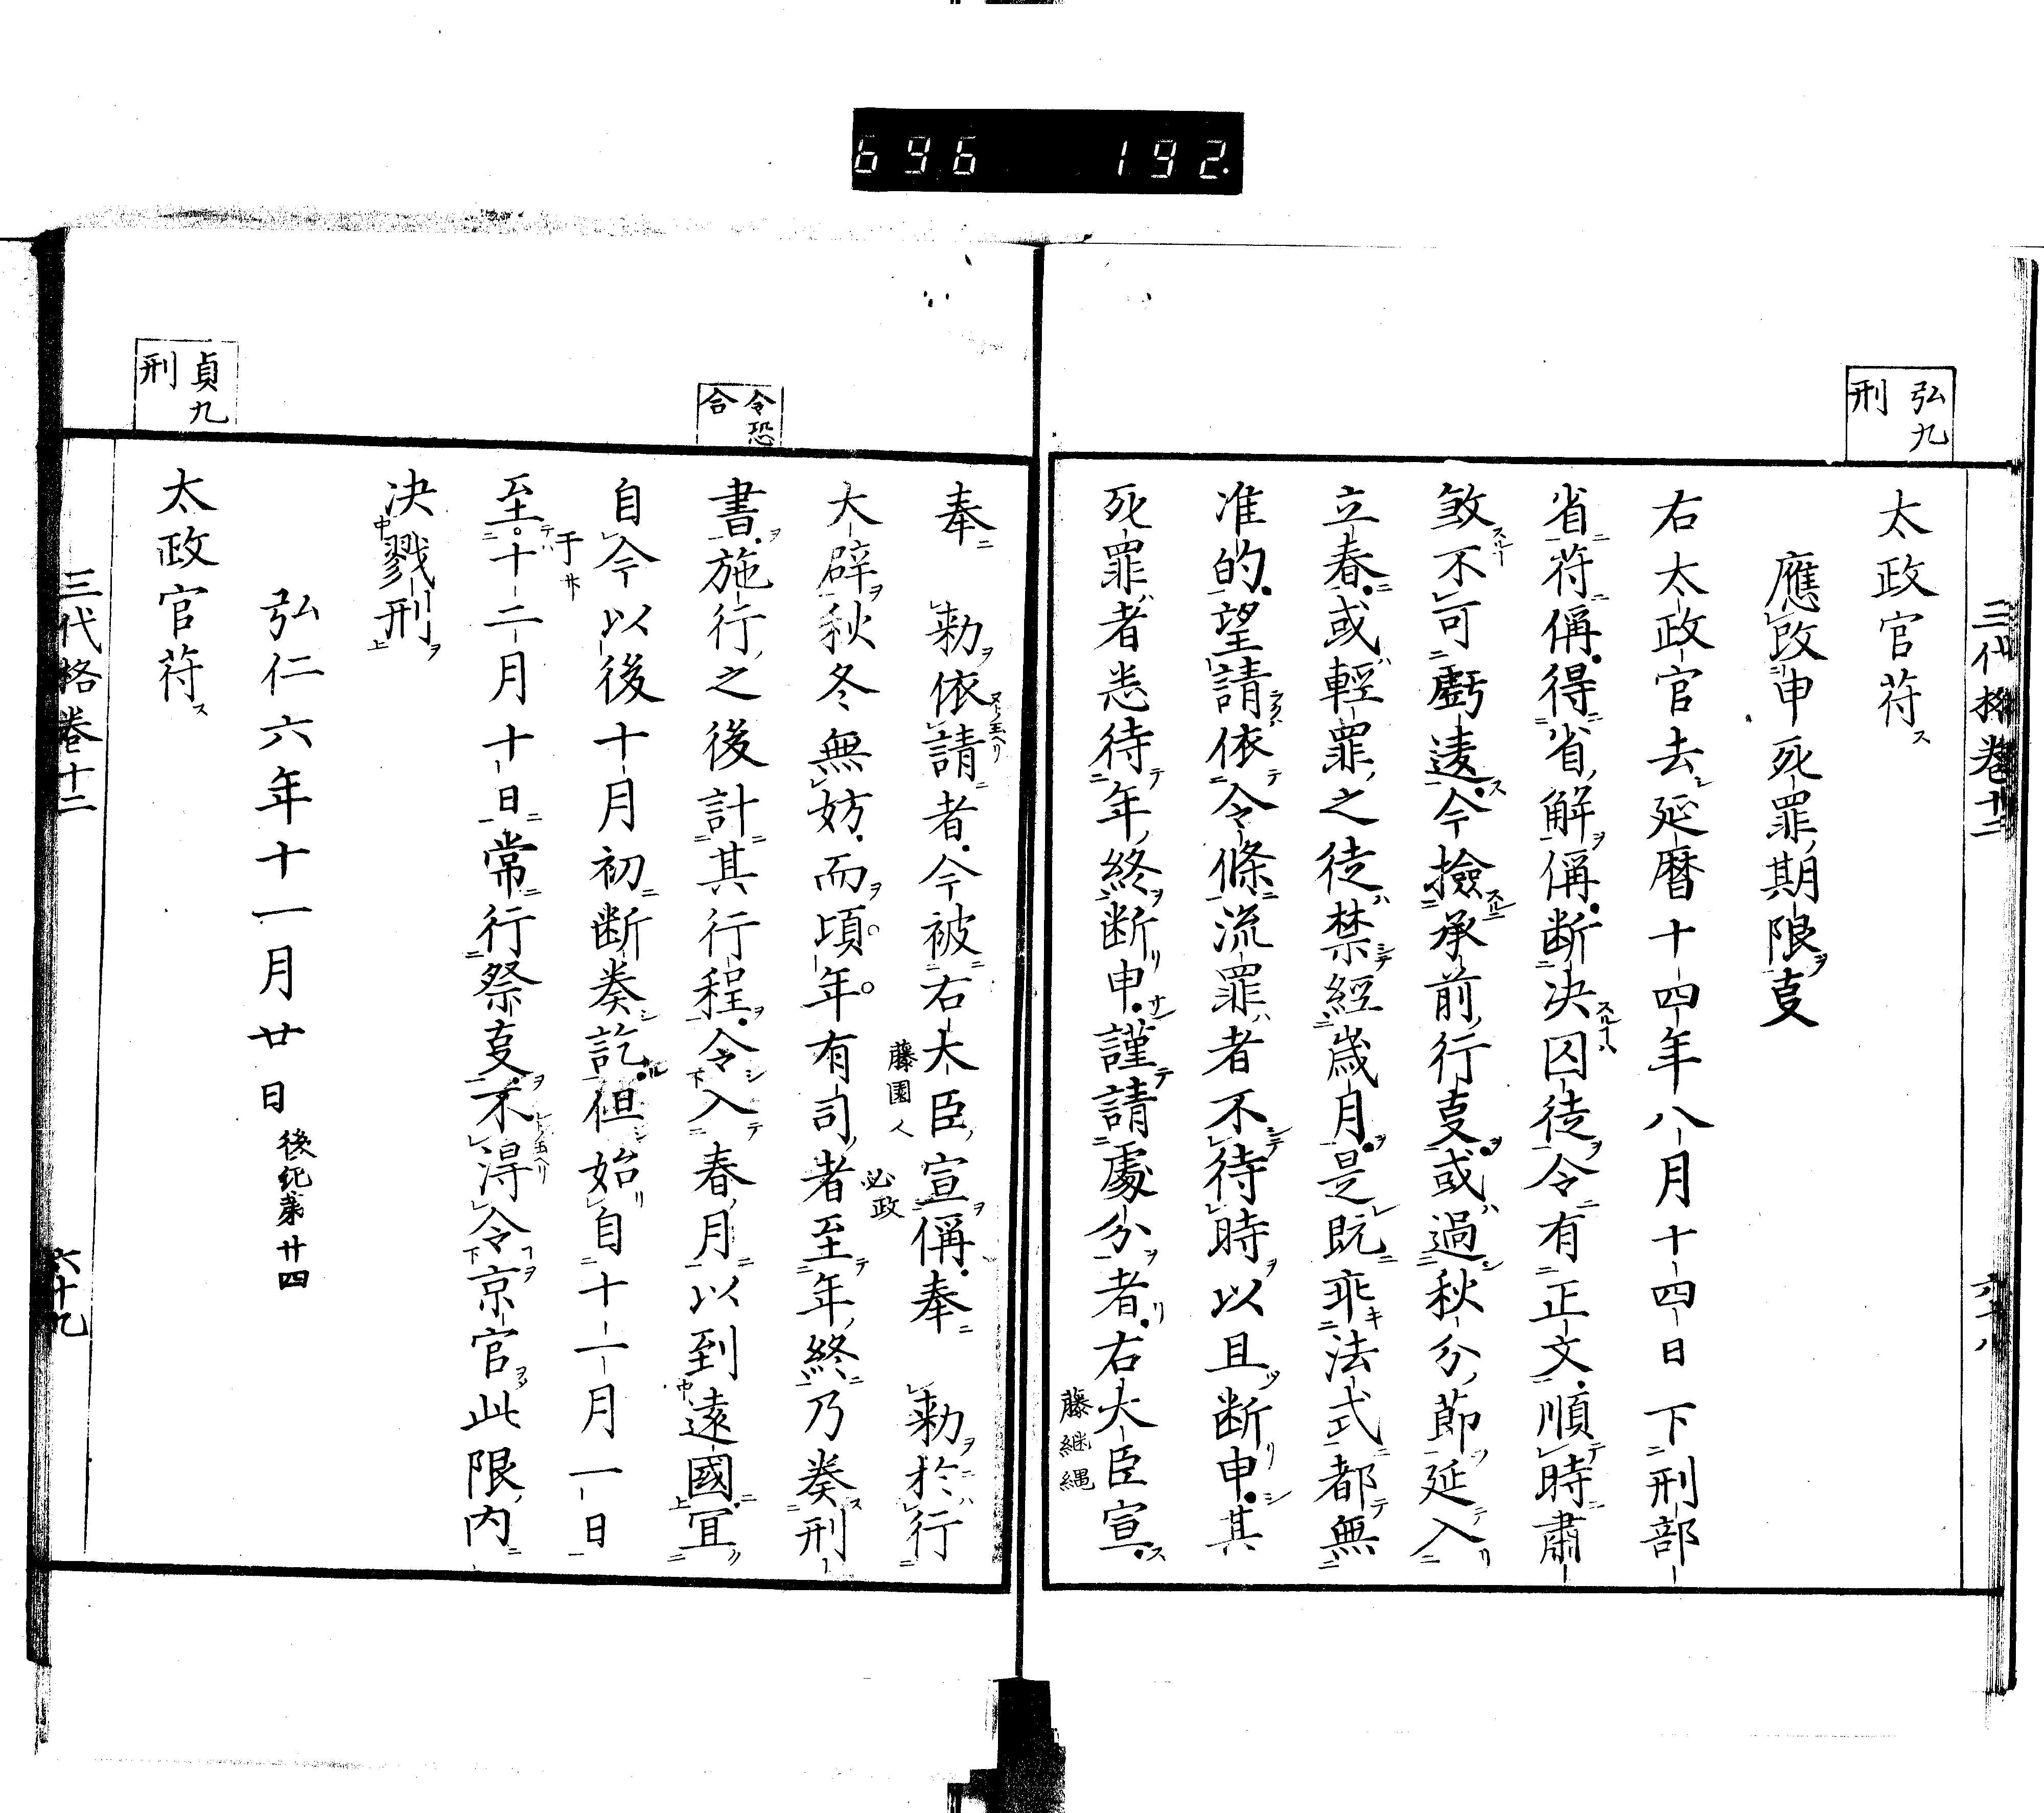 696 192.
弘九
刑
三代格卷十二 六十八
太政官符ス
應改申死罪期限事
右太政官去延暦十四年八月十四日下刑部
省符偁得省解偁断決囚徒令有正文順時肅
煞不可虧違今撿承前行事或過秋分節延入
立春或輕罪之徒禁經歳月是既乖法式都無
准的望請依令條流罪者不待時以且断申其
死罪者悉待年終断申謹請處分者右大臣宣
藤継縄
奉 勅依請者今被右大臣宣偁奉 勅於行
藤園人
大辟秋冬無妨而頃年有司者至年終乃奏刑
必政
令恐
合
書施行之後計其行程令入春月以到遠國宜
自今以後十月初断奏訖但始自十一月一日
至十二月十日常行祭事不得令京官此限内
于
決戮刑
弘仁六年十一月廿日 後紀第廿四
貞九
刑
太政官符ス
三代格卷十二 六十九